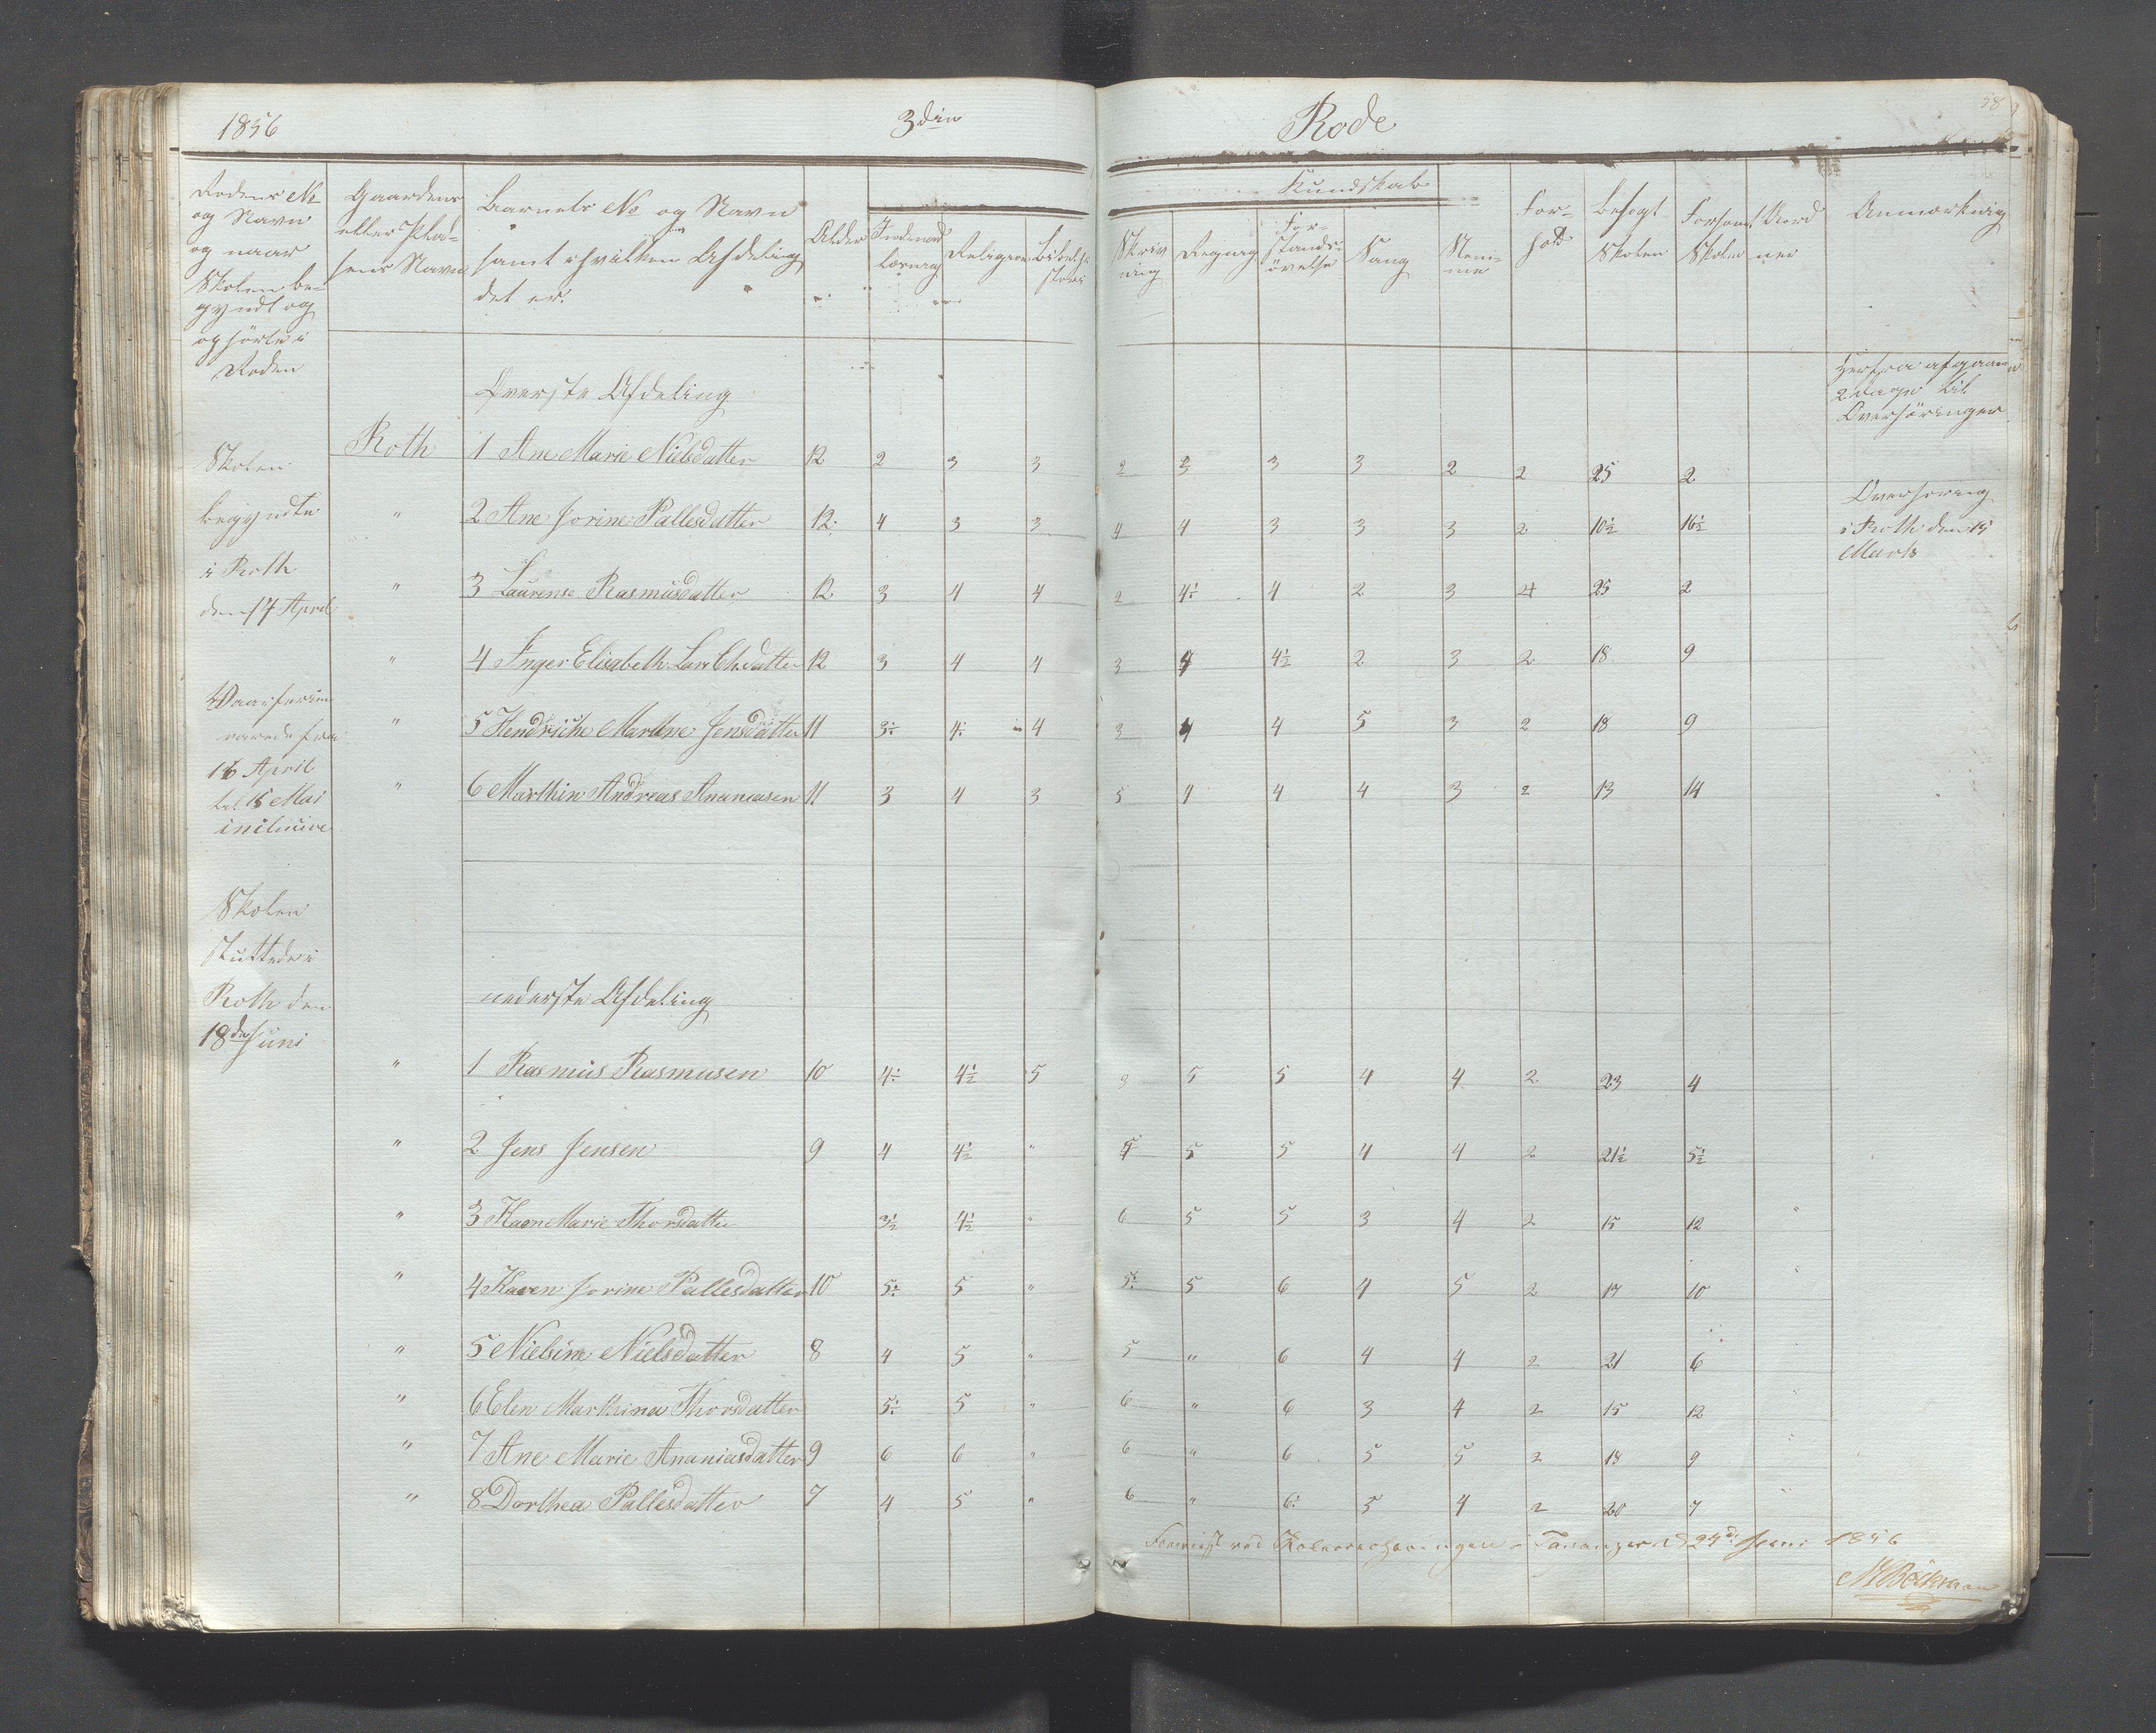 1856 3die Rode 58
Rodens No og Navn og naar Skolen be- gyndt og ophörte i Roden
Gaardens eller Plad- sens Navn
Barnets No og Navn samt i hvilken Afdeling det er.
Alder
Indenad Læsning
Religion
Bibelhi storie
Kundskab
Skriv ning
Regning
For- stands- övelse
Sang
Nem- me
For- hold
Besøgt Skolen
Forsømt Skolen
Anmærkning
Øverste Afdeling
Herfra afgaar 2 Dage til Overhöringer
Roth 1 Ane Marie Nielsdatter 12 2 3 3 2 3 3 3 2 2 25 2
" 2 Ane Jorine Pallesdatter 12 4 3 3 4 4 3 3 3 2 10½ 16½
" 3 Laurense Rasmusdatter 12 3 4 4 2 4÷ 4 2 3 4 25 2
" 4 Inger Elisabeth Lars Ch.datter 12 3 4 4 3 4 4½ 2 3 2 18 9
" 5 Hendriche Marthe Jensdatter 11 3÷ 4÷ 4 3 4 4 5 3 2 18 9
" 6 Marthin Andreas Ananiasen 11 3 4 3 5 4 4 4 3 2 13 14
Overhöring
i Roth den 15
Marts
Skolen
begyndte
i Roth
den 14 April
Vaarferien
varede fra
16 April
til 15 Mai
inclusive
Skolen
sluttede i
Roth den
18de Juni
nederste Afdeling
" 1 Rasmus Rasmusen 10 4÷ 4½ 5 3 5 5 4 4 2 23 4
" 2 Jens Jensen 9 4 4½ " 5 5 5 4 4 2 21½ 5½
" 3 Karen Marie Thorsdatter 3½ 4½ " 6 5 5 3 4 2 15 12
" 4 Karen Jorine Pallesdatter 10 5÷ 5 " 5÷ 5 6 4 5 2 17 10
" 5 Nielsine Nielsdatter 8 4 5 " 5 " 6 4 4 2 21 6
" 6 Elen Marthina Thorsdatter 5÷ 5 " 6 " 6 3 4 2 15 12
" 7 Ane Marie Ananiasdatter 9 6 6 " 6 " 6 5 5 2 18 9
" 8 Dorthea Pallesdatter 7 4 5 " 6 " 6÷ 5 4 2 20 7
Foreviist ved Skoleoverhøringen i Tananger d 24de Juni 1856